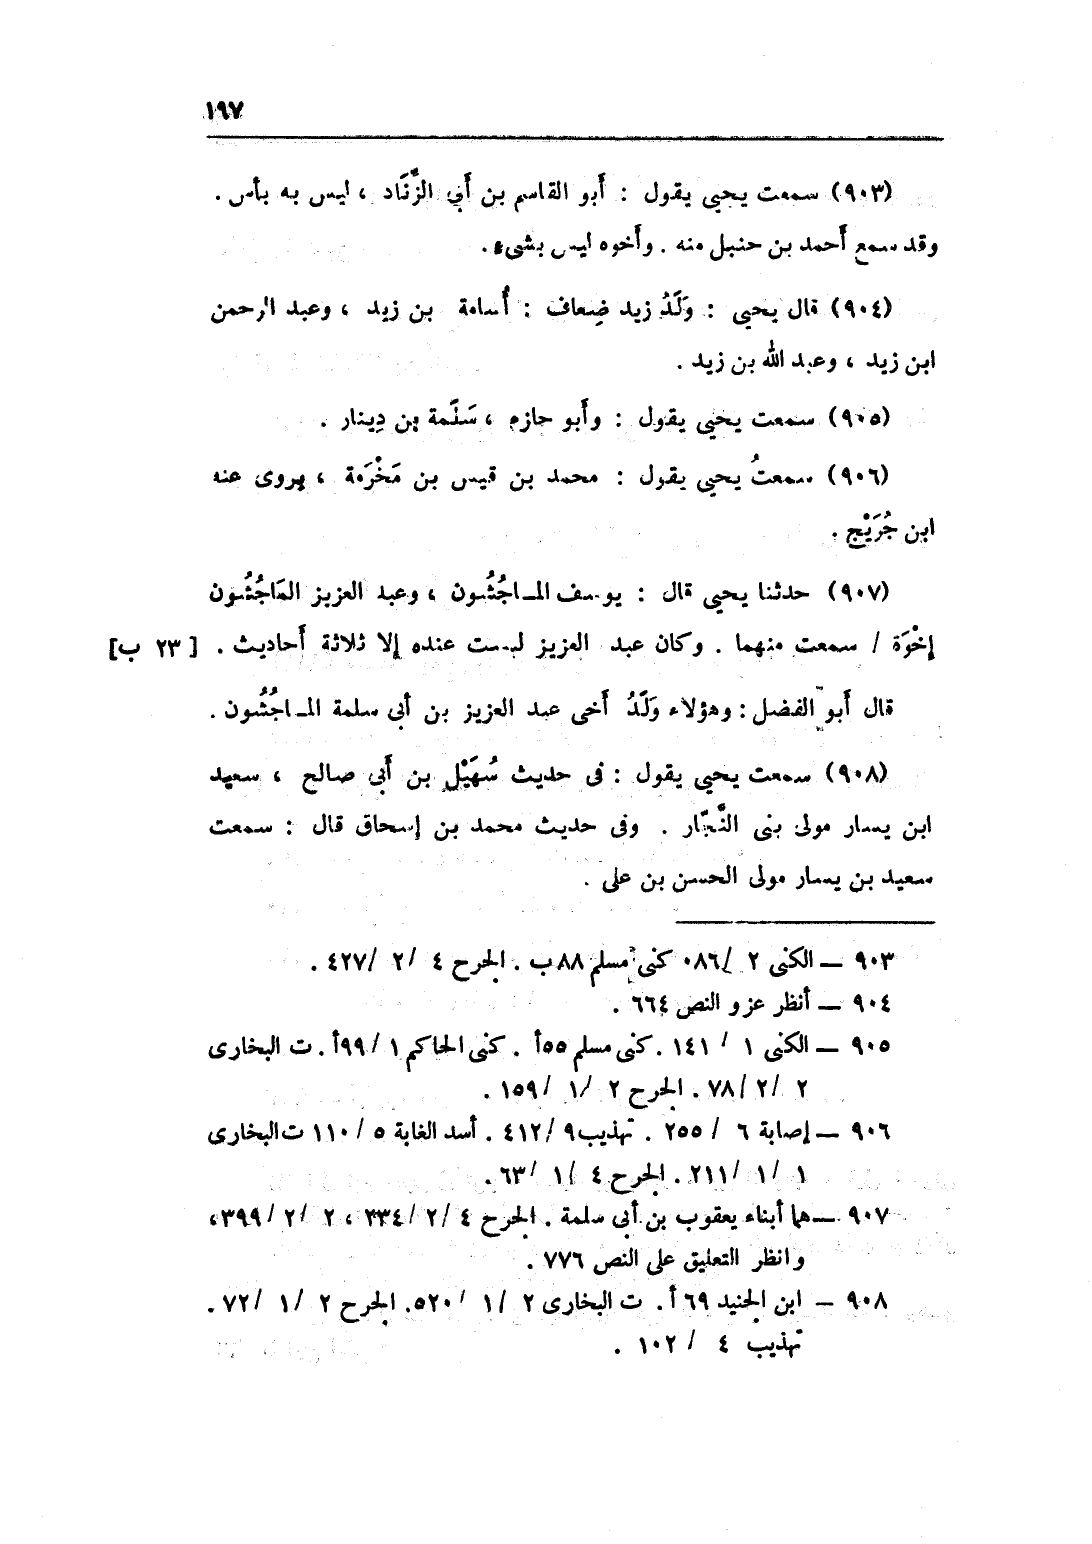 ١٩٧
(٩٠٣) سمعت يحيى يقول : أَبو القاسم بن أَبي الزِّنَاد ، ليس به بأس .
وقد سمع أَحمد بن حنبل منه . وأَخوه ليس بشىء .
(٩٠٤) قال يحيى : وَلَدُ زيد ضِعاف : أُسامة بن زيد ، وعبد الرحمن
ابن زيد ، وعبد الله بن زيد .
(٩٠٥) سمعت يحيى يقول : وأَبو حازم ، سَلَمة بن دِينار .
(٩٠٦) سمعتُ يحيى يقول : محمد بن قيس بن مَخْرَمة ، يروى عنه
ابن جُرَيْج .
(٩٠٧) حدثنا يحيى قال : يوسف المـاجُشُون ، وعبد العزيز المَاجُشُون
إِخْوَة / سمعت منهما . وكان عبد العزيز ليست عنده إلا ثلاثة أَحاديث . [ ٢٣ ب]
قال أَبو الفضل : وهؤلاء وَلَدُ أَخى عبد العزيز بن أبى سلمة المـاجُشُون .
(٩٠٨) سمعت يحيى يقول : فى حديث سُهَيْل بن أَبى صالح ، سعيد
ابن يسار مولى بنى النَّجّار . وفى حديث محمد بن إسحاق قال : سمعت
سعيد بن يسار مولى الحسن بن على .
٩٠٣ — الكنى ٢ /٠٨٦ كنى مسلم ٨٨ب . الجرح ٤ /٢ /٤٢٧ .
٩٠٤ — أنظر عزو النص ٦٦٤ .
٩٠٥ — الكنى ١ / ١٤١ . كنى مسلم ٥٥أ . كنى الحاكم ١ /٩٩أ . ت البخارى
٢ /٢ /٧٨ . الجرح ٢ /١ /١٥٩ .
٩٠٦ — إصابة ٦ / ٢٥٥ . تهذيب ٩ /٤١٢ . أسد الغابة ٥ / ١١٠ ت البخارى
١ /١ /٢١١ . الجرح ٤ /١ /٦٣ .
٩٠٧ — هما أبناء يعقوب بن أبى سلمة . الجرح ٤ /٢ /٣٣٤ ، ٢ /٢ /٣٩٩،
وانظر التعليق على النص ٧٧٦ .
٩٠٨ — ابن الجنيد ٦٩ أ. ت البخارى ٢ /١ /٥٢٠. الجرح ٢ /١ /٧٢ .
تهذيب ٤ /١٠٢ .